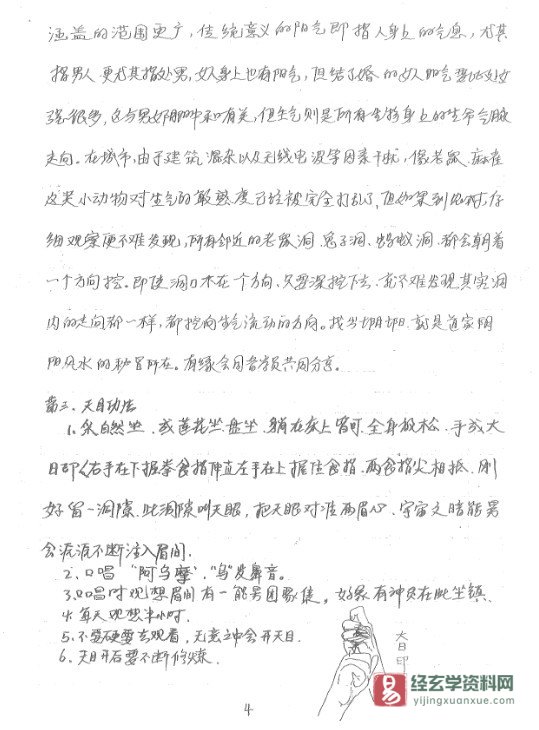 涵盖的范围更广，传统意义的阳气即指人身上的气息，尤其
指男人更尤其指处男，女人身上也有阳气，但结了婚的女人阳气要比处女
强很多，这与男女阴阳中和有关，但生气则是所有生物身上的生命气脉
走向。在城市，由于建筑混杂以及无线电波等因素干扰，像老鼠、麻雀
这类小动物对生气的敏感度已经被完全打乱了，但如果到农村，仔
细观察便不难发现，所有邻近的老鼠洞、兔子洞、蚂蚁洞、都会朝着
一个方向挖。即使洞口不在一个方向，只要深挖下去，就不难发现其实洞
内的走向都一样，都挖向生气流动的方向。找出阴阳，就是道家阴
阳风水的秘旨所在。有缘会同各学员共同分享。
篇三、天目功法
1.采自然坐、或莲花坐、盘坐、躺在床上皆可、全身放松、手成大
日印（右手在下握拳食指伸直左手在上握住食指、两食指尖相抵、刚
好留一洞隙、此洞隙叫天眼，把天眼对准两眉心、宇宙之暗能量
会源源不断注入眉间.
2、口唱“阿乌摩”，“乌”发鼻音。
3、口唱时观想眉间有一能量团聚集，好象有神灵在此坐镇、
4.每天观想半小时.
5、不要硬要去观看，无意之中会开天目.
6、天目开后要不断修炼.
大日印
经玄学资料网
yijingxuanxue.com
4